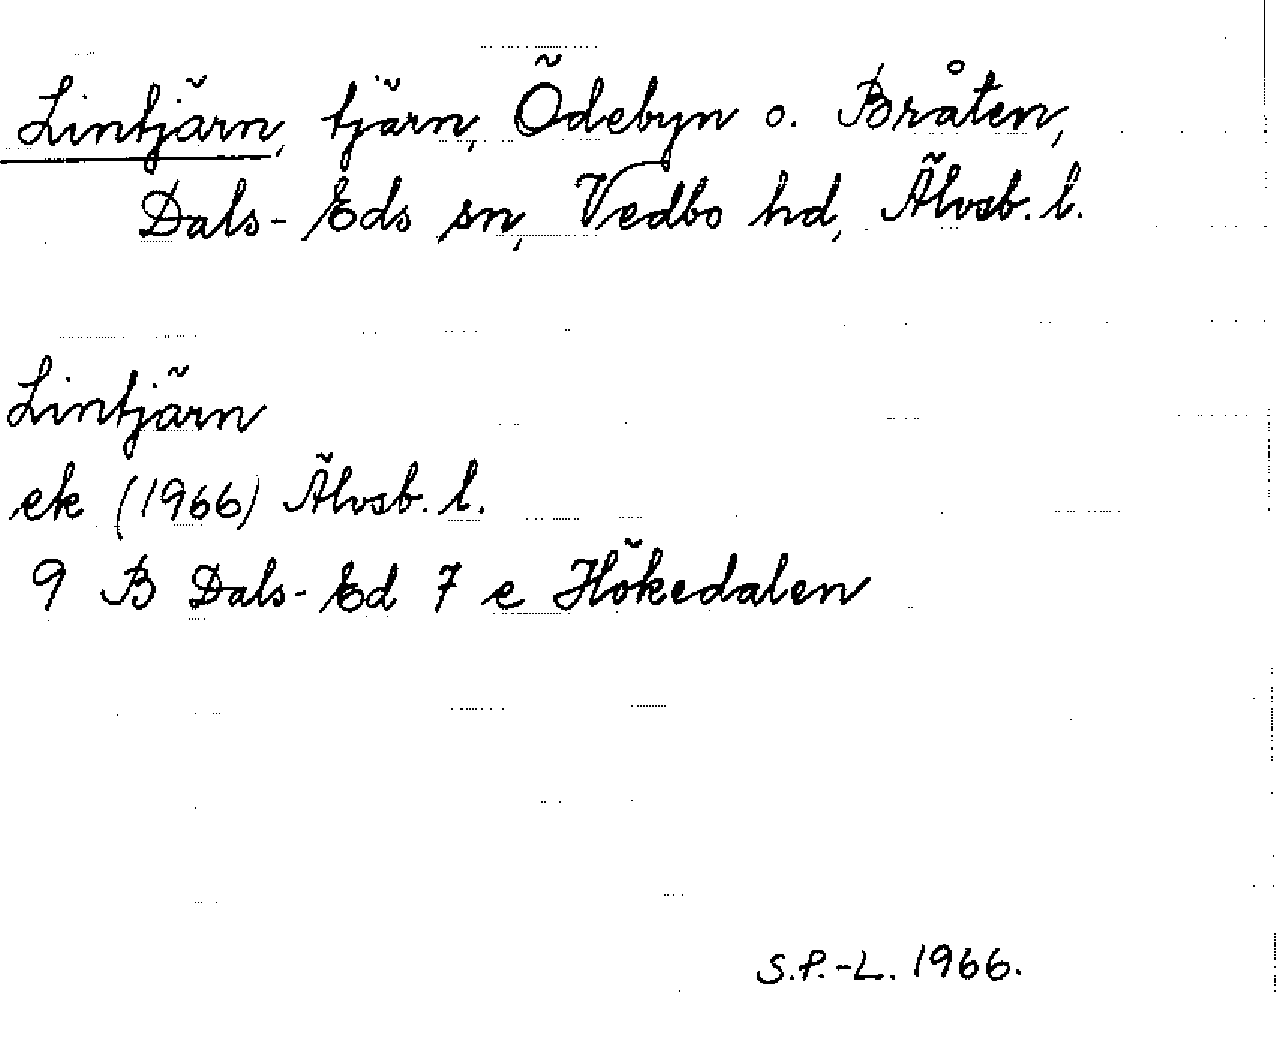 Lintjärn, tjärn, Ödebyn o. Bråten,
Dals-Eds sn, Vedbo hd, Älvsb. l.
Lintjärn
ek (1966) Älvsb. l.
9 B Dals-Ed 7 e Hökedalen
S.P.-L. 1966.